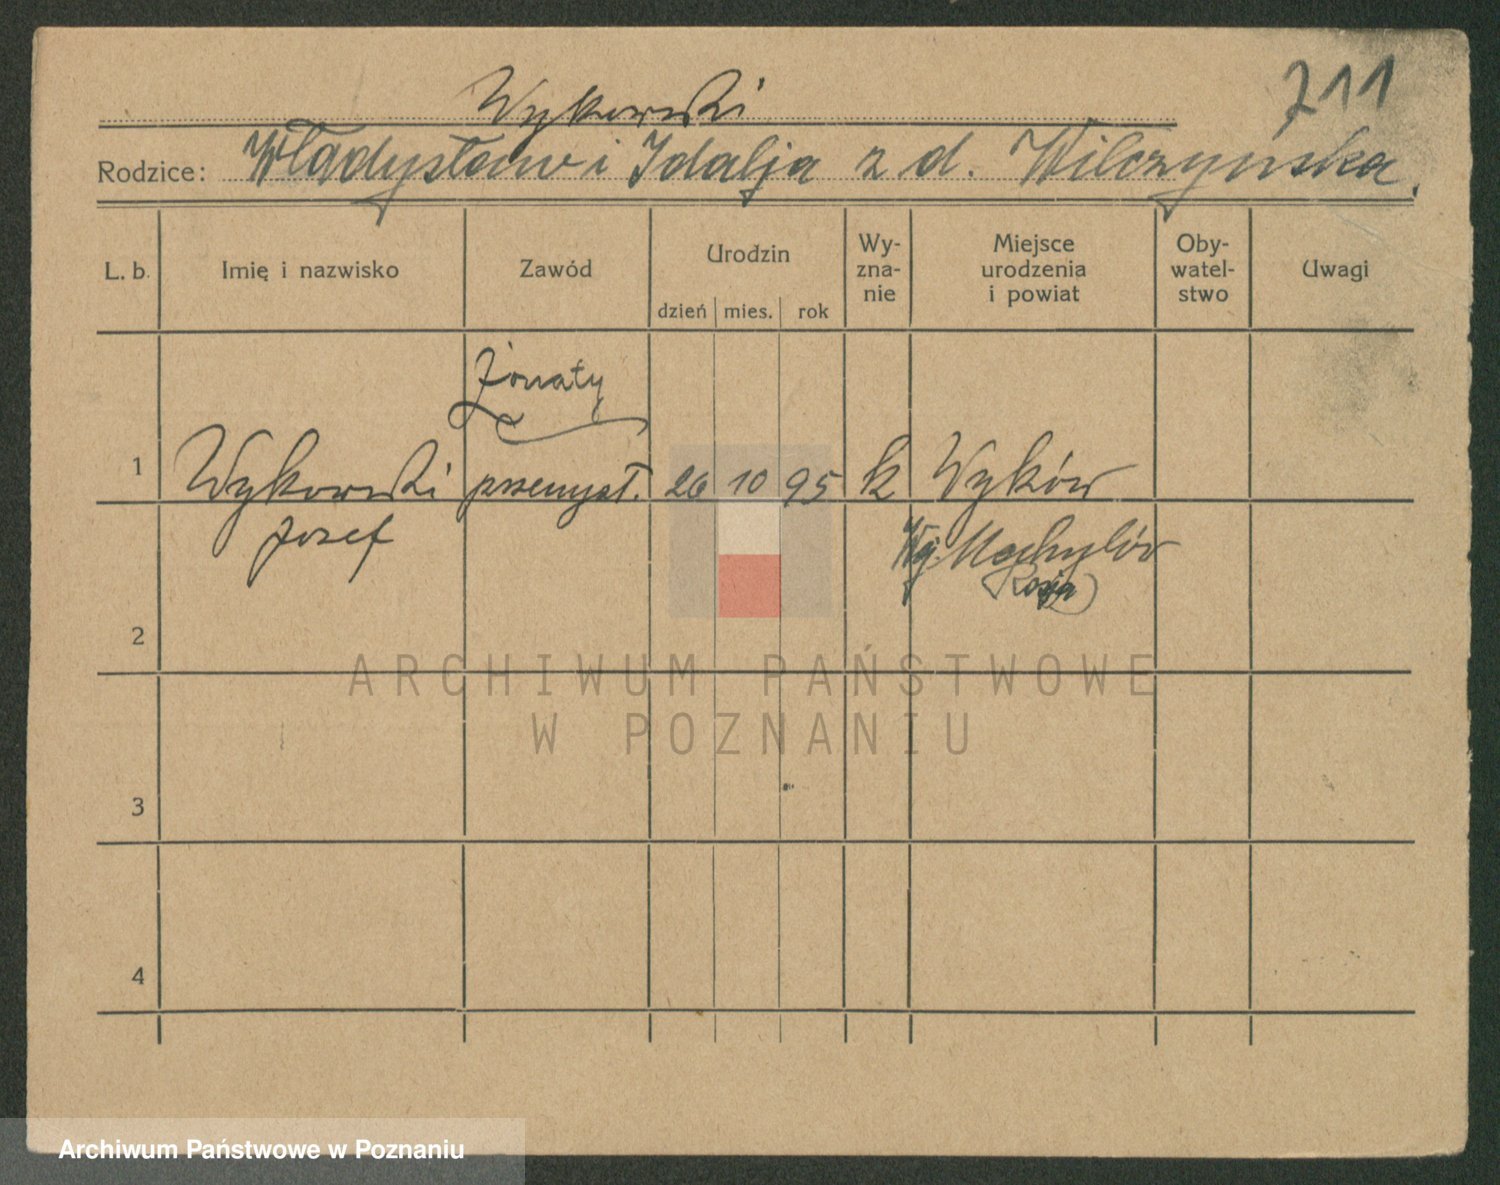 711
Wykowski
Rodzice: Władysław i Idalja z d. Wilczyńska.
L. b. Imię i nazwisko Zawód Urodzin dzień mies. rok Wy-zna-nie Miejsce urodzenia i powiat Oby-watel-stwo Uwagi
żonaty
1 Wykowski przemysł. 26 10 95 k Wyków
Józef Mochylów
(Rosja)
2
ARCHIWUM PAŃSTWOWE
W POZNANIU
3
4
Archiwum Państwowe w Poznaniu